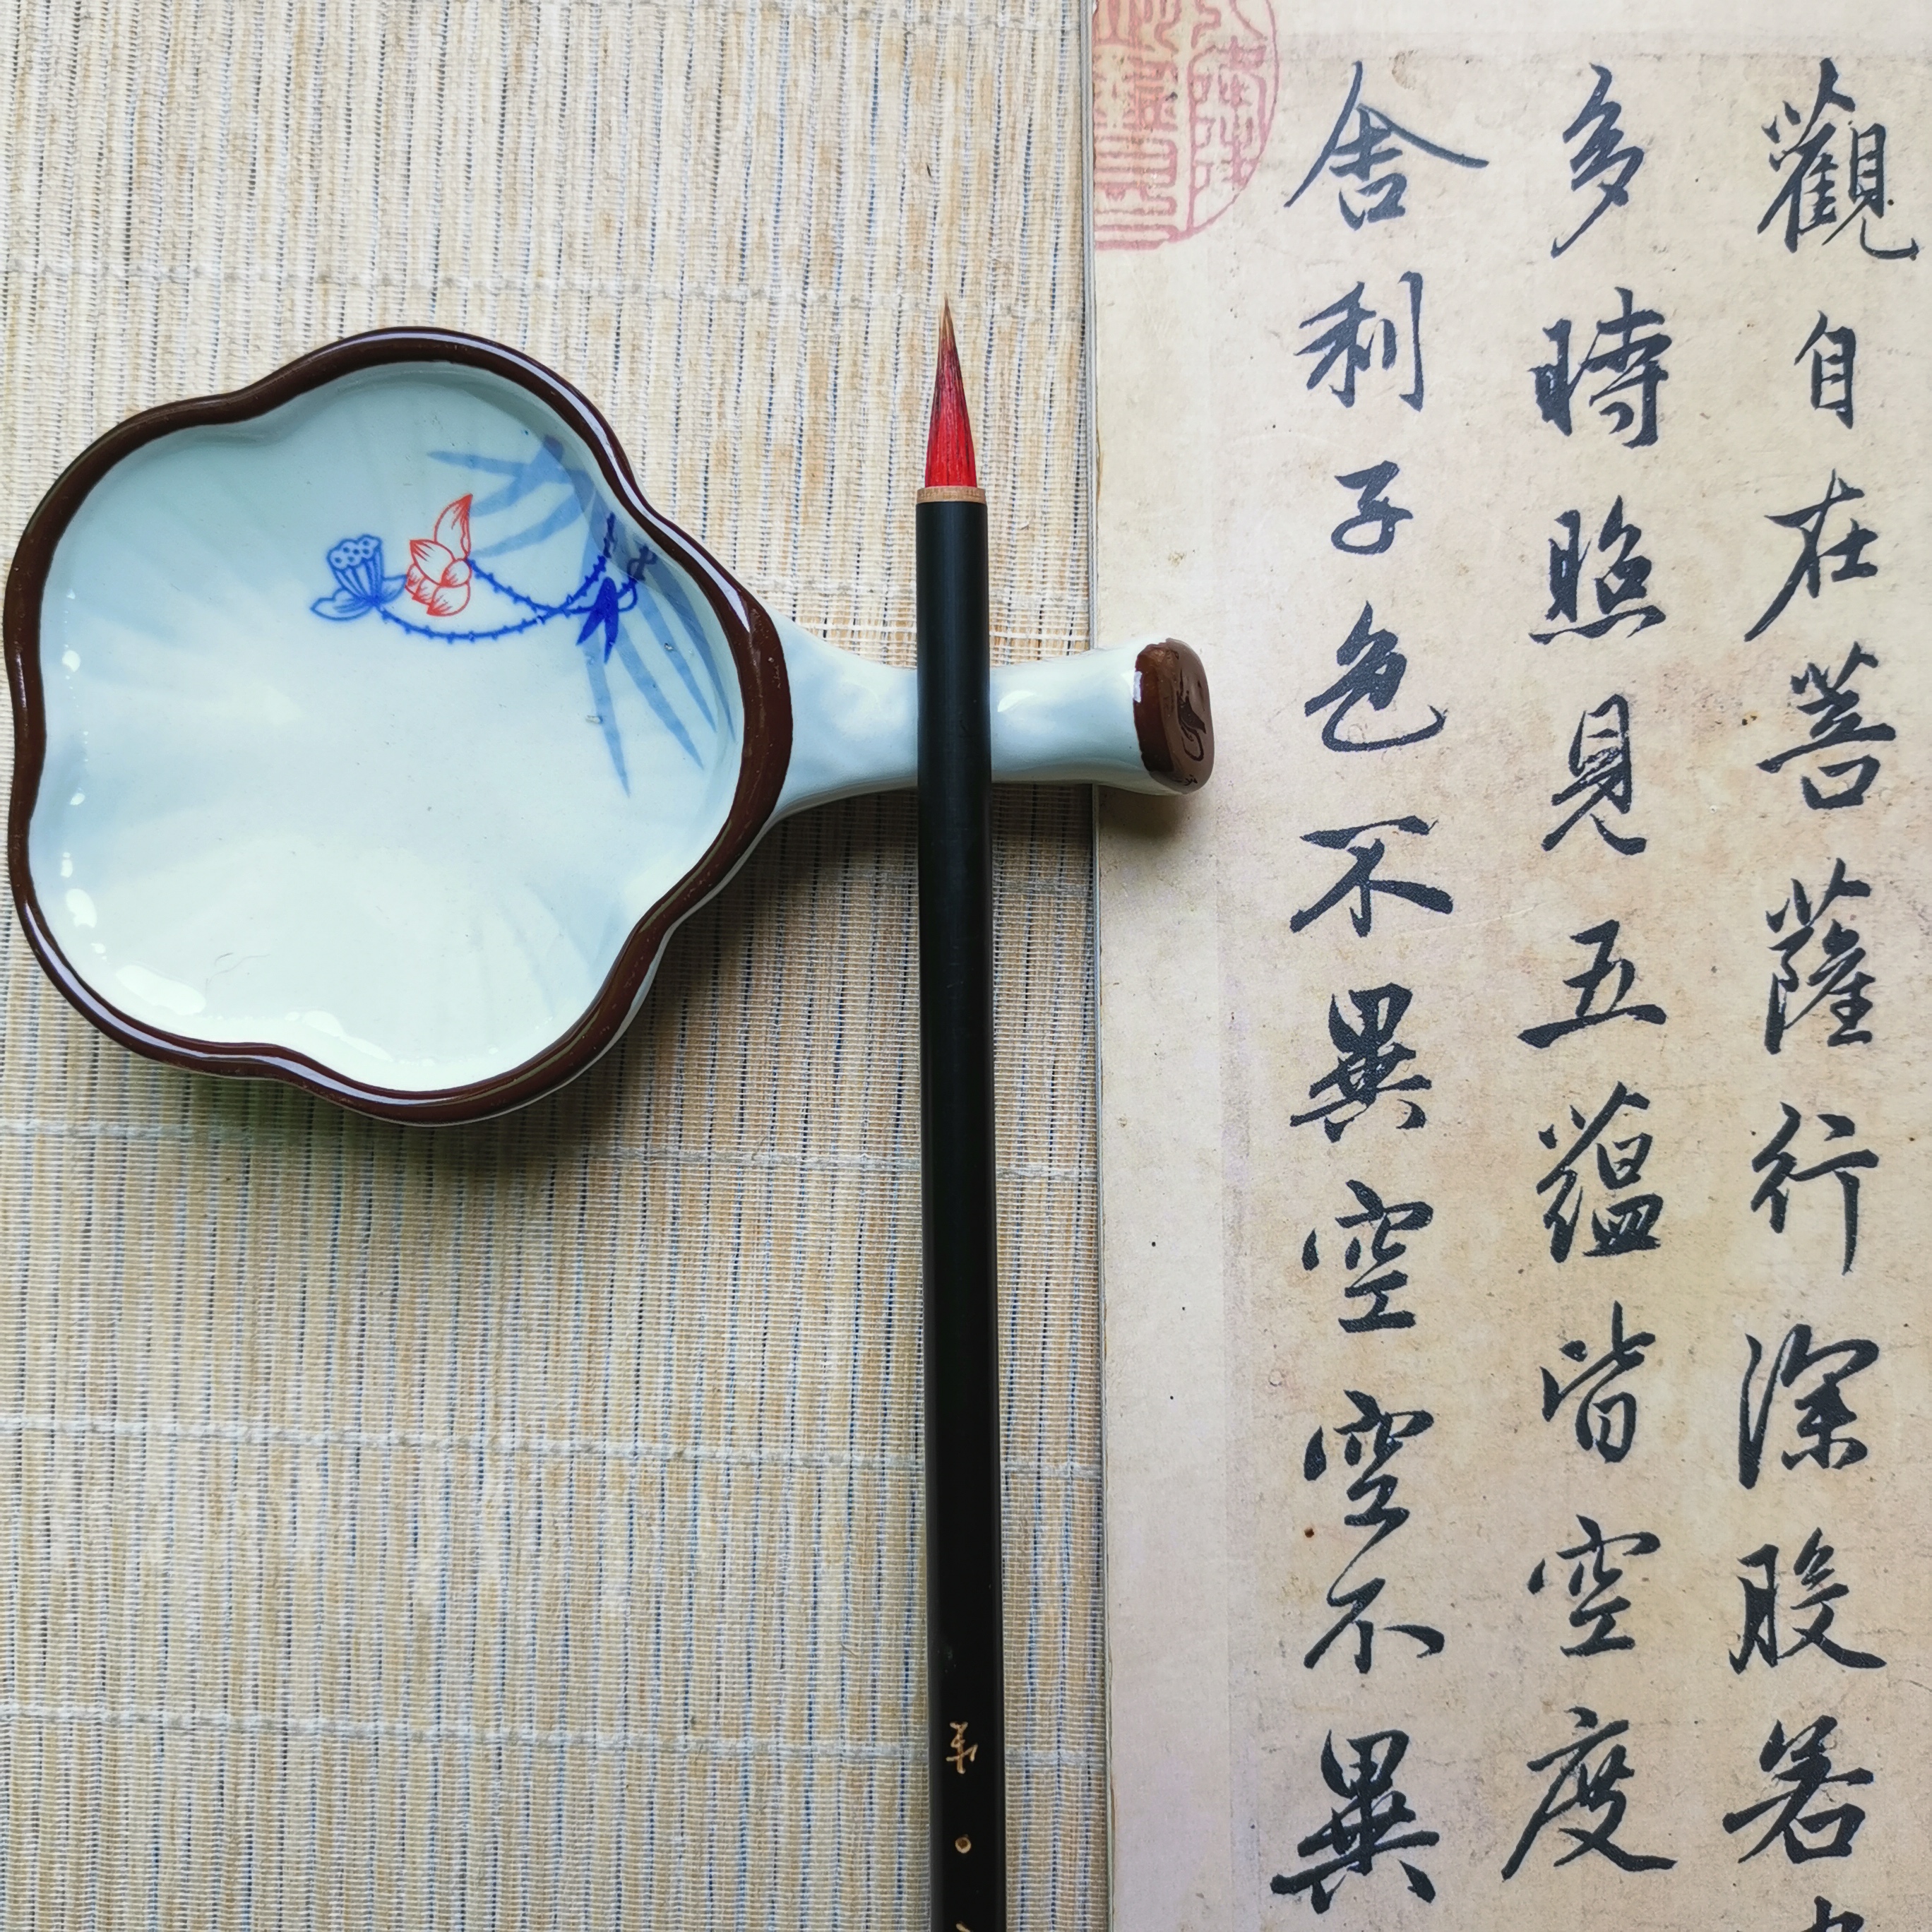 觀自在菩薩行深般若
多時照見五蘊皆空度
舍利子色不異空空不異